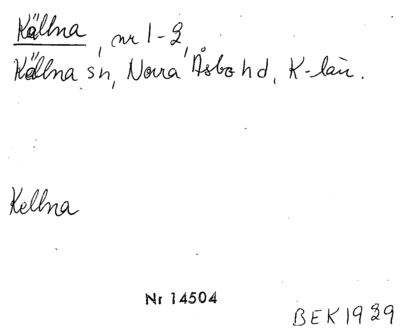 Källna, nr 1-2,
Källna sn, Norra Åsbo hd, K-län.
Kellna
Nr 14504
BEK 1929